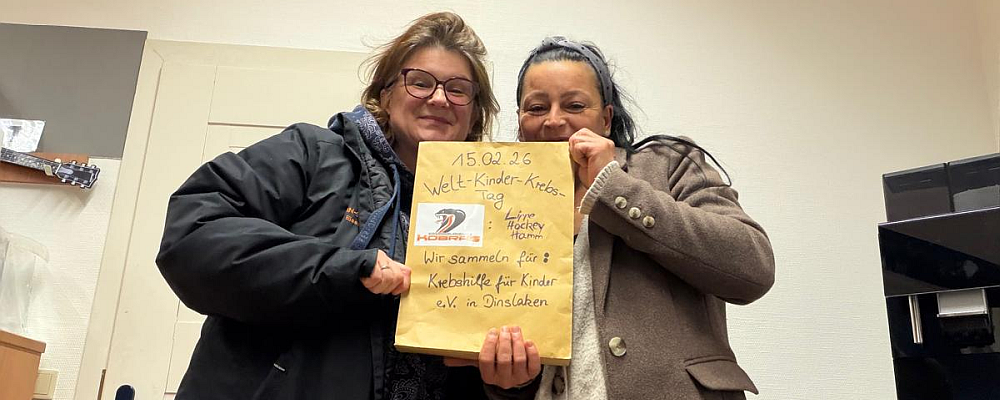 15.02.26
Welt-Kinder-Krebs-
Tag
KOBRAS : Lippe
Hockey
Hamm
Wir sammeln für:
Krebshilfe für Kinder
e.V. in Dinslaken